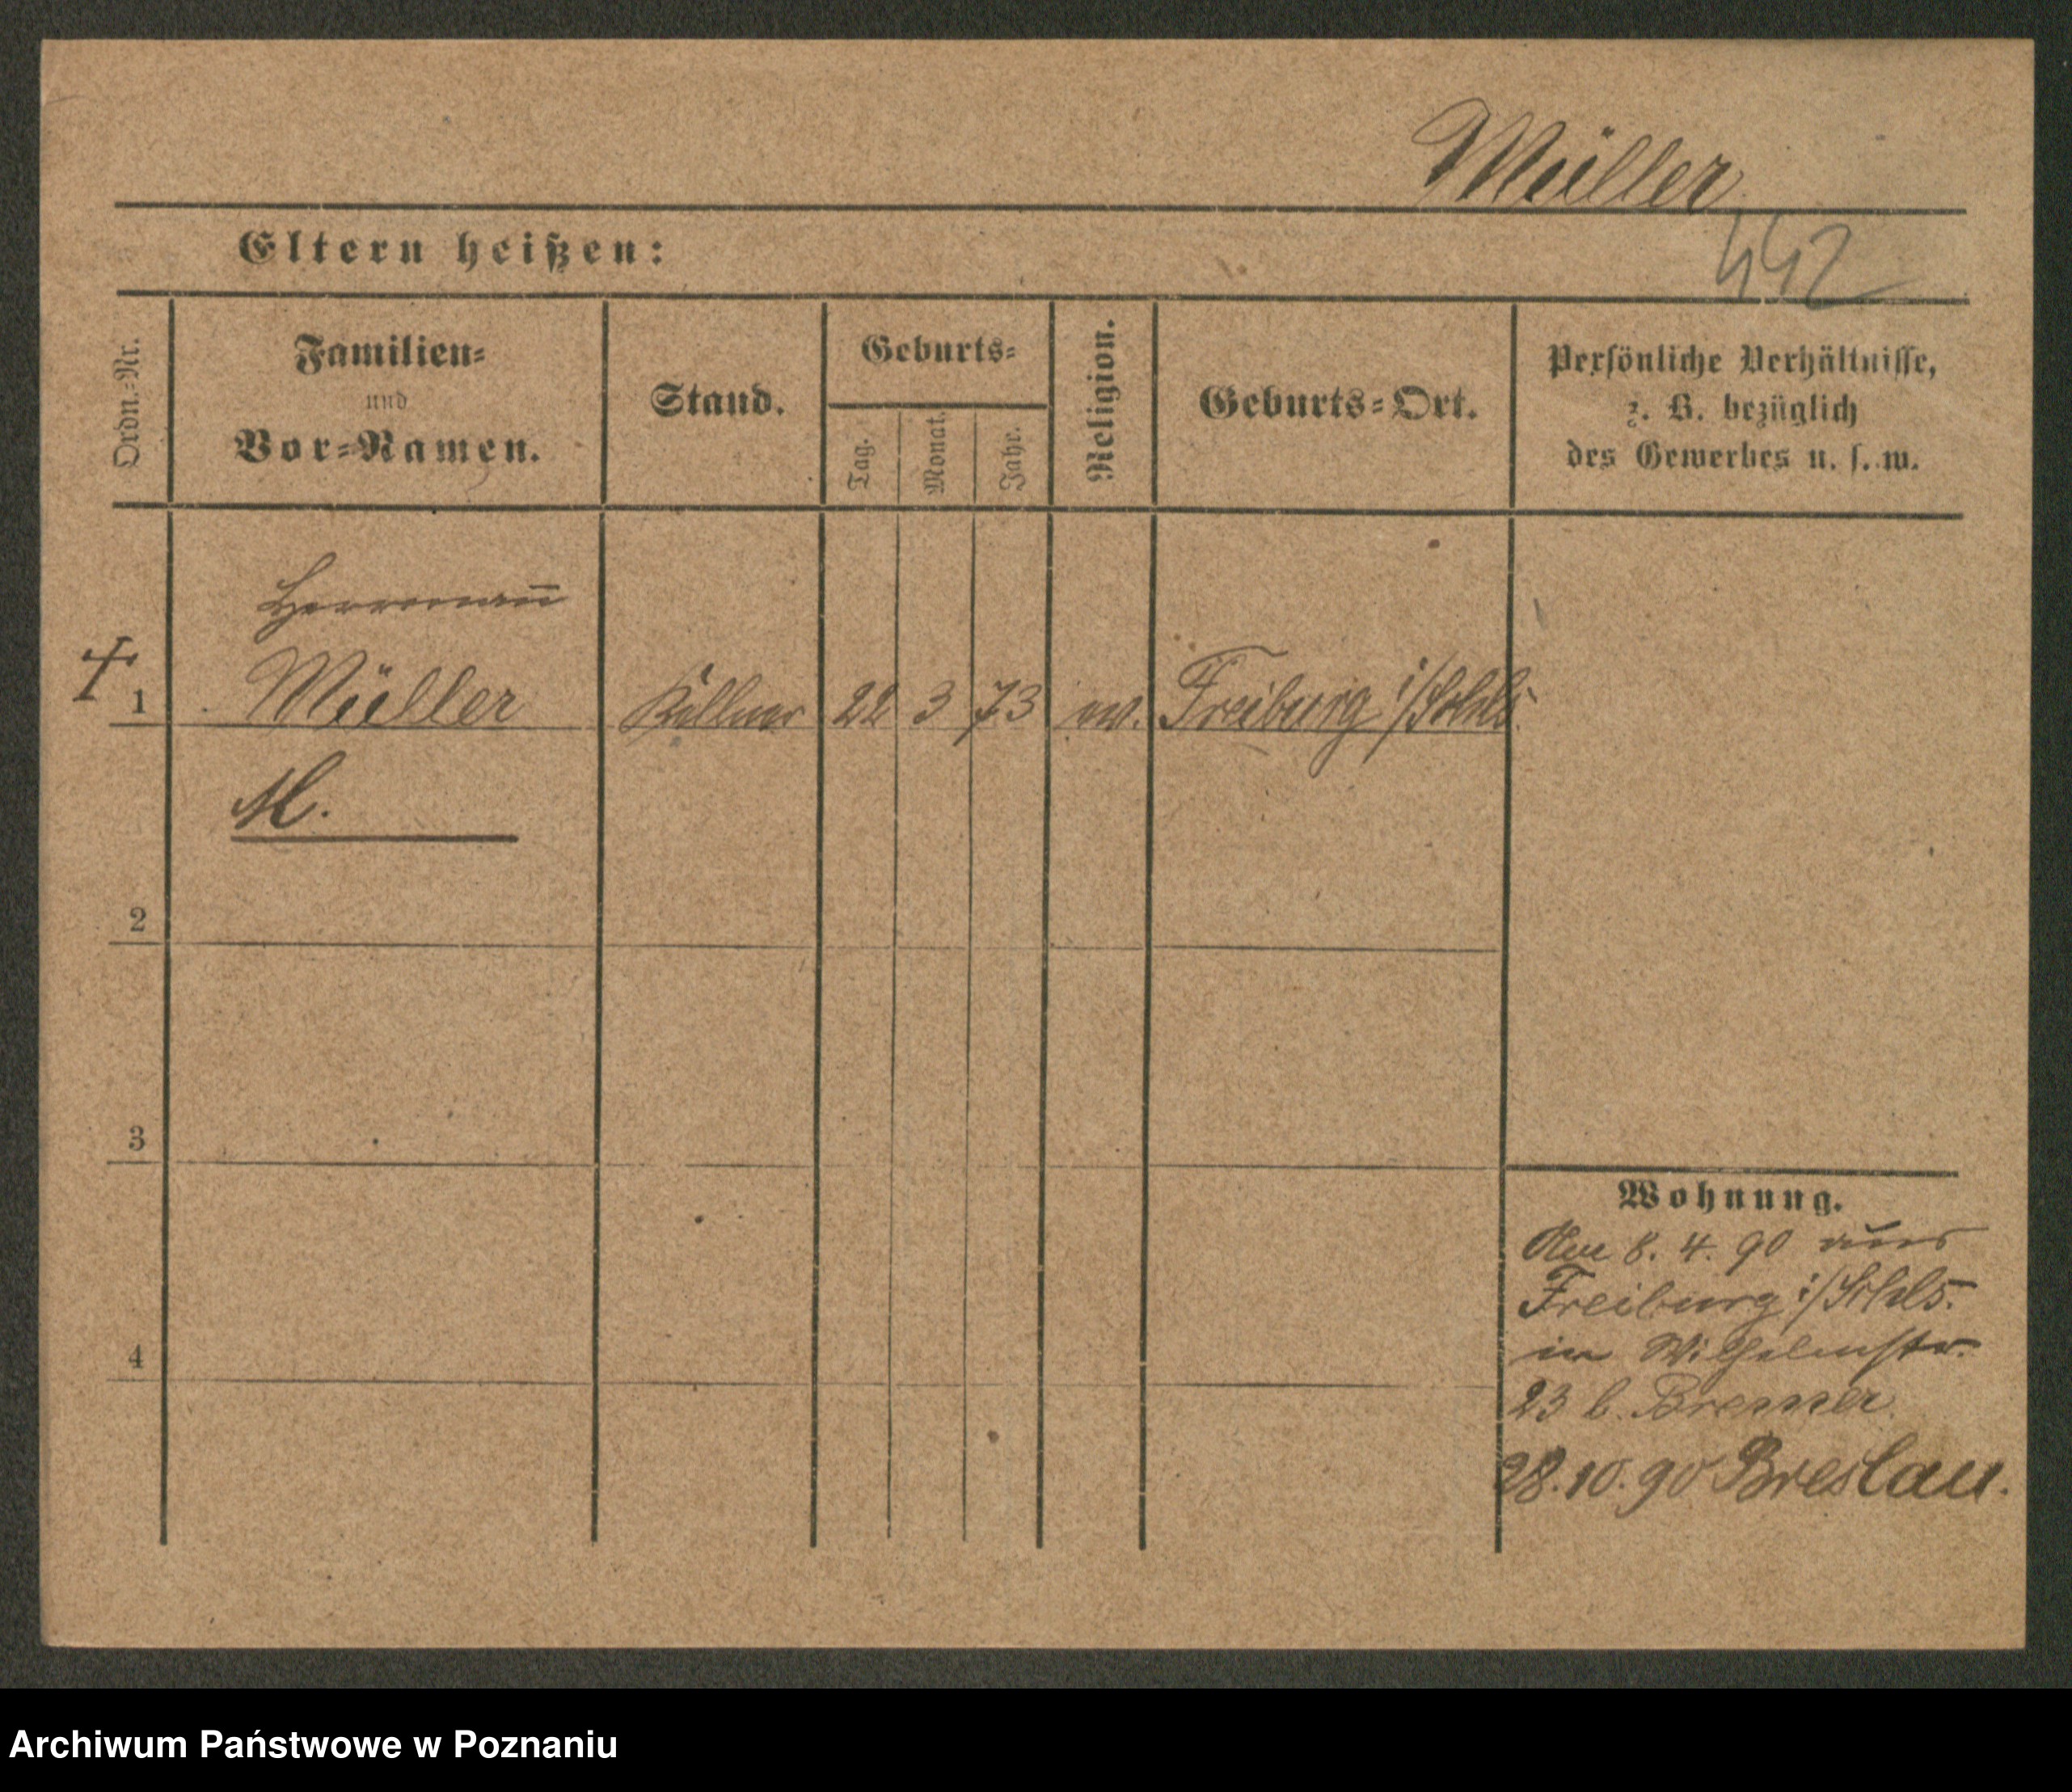 Müller
442
Eltern heißen:
Ordn.-Nr.
Familien-
und
Vor-Namen.
Stand.
Geburts-
Tag.
Monat.
Jahr.
Religion.
Geburts-Ort.
Persönliche Verhältnisse,
z. B. bezüglich
des Gewerbes u. s. w.
Herrmañ
1 Müller Kellner 22 3 73 ev. Freiburg i/Schls.
M.
2
3
4
Wohnung.
Am 8. 4. 90 aus
Freiburg i/Schls.
in Wilhelmstr.
23 b. Bremer
28.10.90 Breslau.
Archiwum Państwowe w Poznaniu